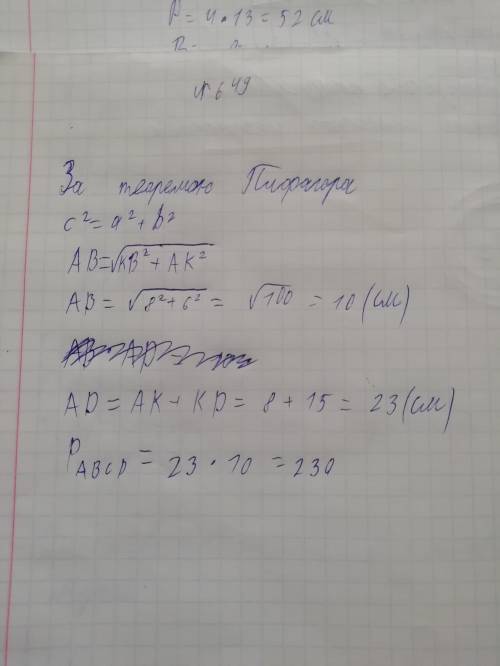 P = 4 • 13 = 52 см
№ 649
За теоремою Піфагора
c² = a² + b²
AB = √KB² + AK²
AB = √8² + 6² = √100 = 10 (см)
AD = AK + KD = 8 + 15 = 23 (см)
P ABCD = 23 • 10 = 230